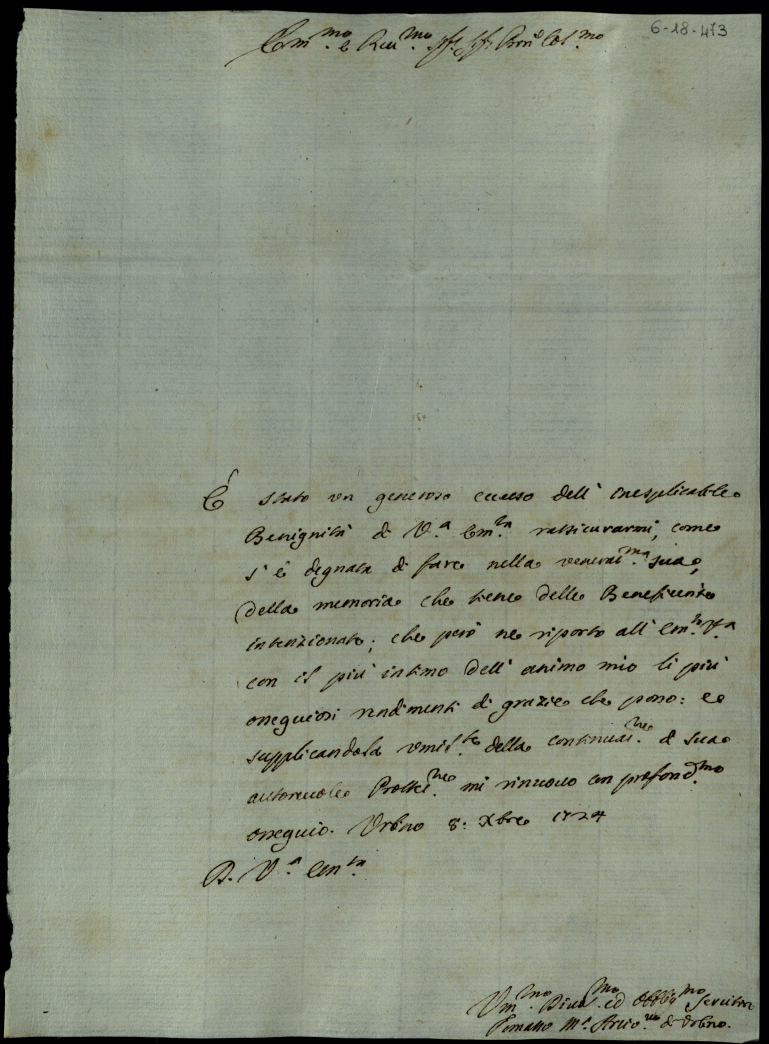 6-18-473
Em.mo e Rev.mo Sig. Sig. Pron Col.mo
È stato un generoso eccesso dell' inesplicabile
Benignità di V.a Em.za rassicurarmi, come
s'è degnata di fare nella venerat.ma sua,
della memoria che tiene delle Beneficenze
intenzionate; che però ne riporto all' Em.za V.a
con il più intimo dell' animo mio li più
ossequiosi rendimenti di grazie che posso: e
supplicandola umil.te della continuaz.ne di sua
autorevole Protez.ne mi rinuovo con profond.mo
ossequio. Urbino 8: Xbre 1724
D. V.a Em.za
Um.mo Divot.mo ed Obblig.mo Servitore
Tomasso M.a Arciv.vo di Urbino.